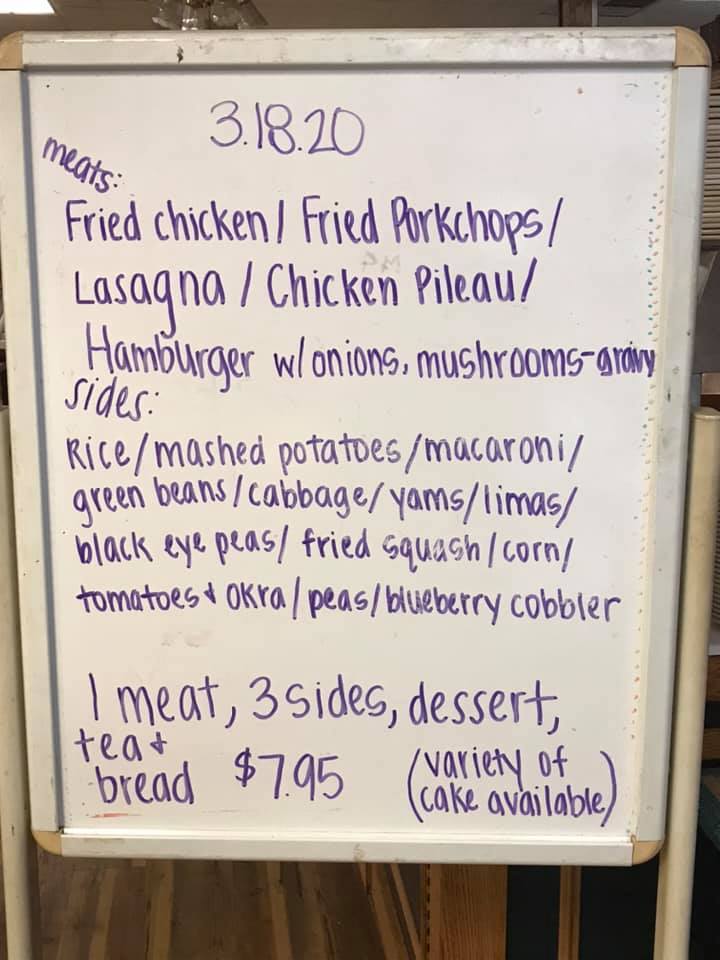 3.18.20
meats:
Fried chicken / Fried Porkchops /
Lasagna / Chicken Pileau /
Hamburger w/ onions, mushrooms-gravy
sides:
Rice/mashed potatoes/macaroni/
green beans/cabbage/yams/limas/
black eye peas/ fried squash/corn/
tomatoes & okra/peas/blueberry cobbler
1 meat, 3 sides, dessert,
tea &
bread $7.95 (variety of
cake available)